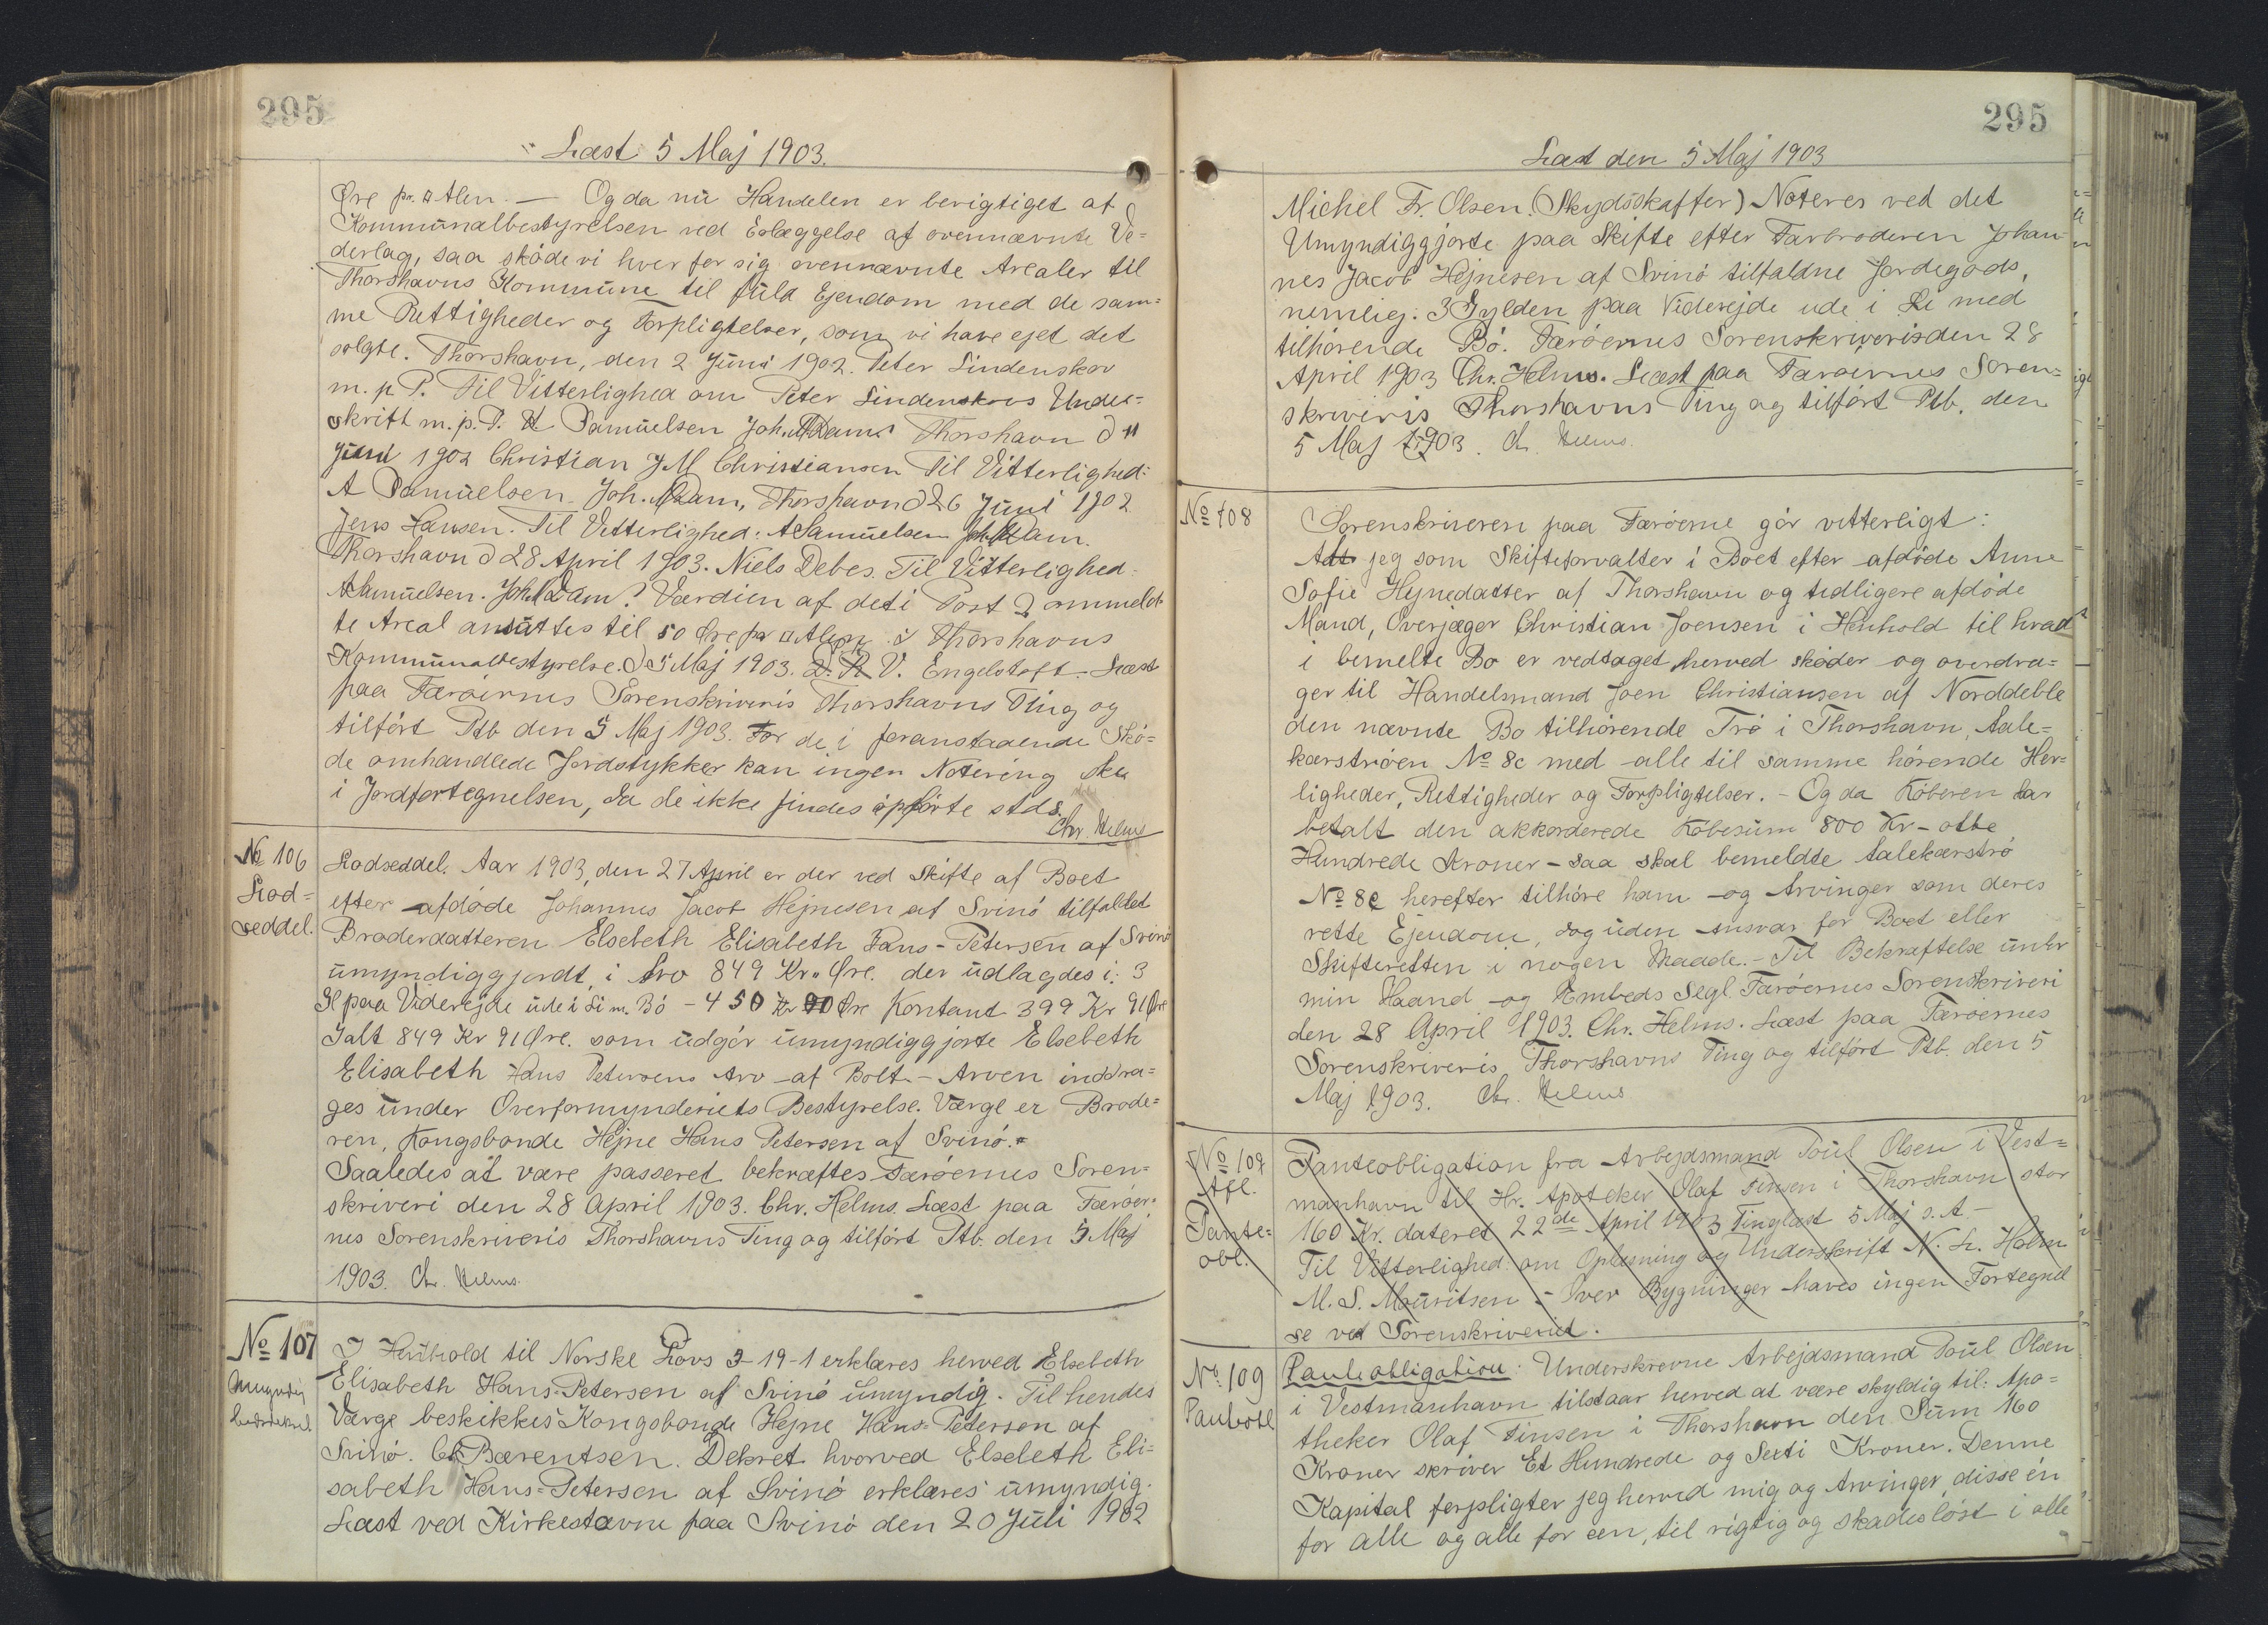 295
Læst 5 Maj 1903.
Øre pr. □ Alen. — Og da nu Handelen er berigtiget af
Kommunalbestyrelsen ved Erlæggelse af ovennævnte Ve=
derlag, saa skøde vi hver for sig ovennævnte Arealer til
Thorshavns Kommune til fuld Ejendom med de sam=
me Rettigheder og Forpligtelser, som vi have ejet det
solgte. Thorshavn, den 2 Juni 1902. Peter Lindenskov
m. p P. Til Vitterlighed om Peter Lindenskovs Under=
skrift m. p. P. A Samuelsen Joh. M Dam. Thorshavn d "
Juni 1902 Christian J M Christiansen Til Vitterlighed:
A Samuelsen Joh. M Dam, Thorshavn d 26 Juni 1902
Jens Hansen. Til Vitterlighed: A Samuelsen Joh M Dam.
Thorshavn d 28 April 1903. Niels Debes. Til Vitterlighed
A Samuelsen. Joh. M Dam? Værdien af det i Post 2 ommeld=
te Areal ansættes til 50 Øre pr □ Alen i Thorshavns
Kommunalbestyrelse. d 5 Maj 1903. V. Engelstoft. Læst
paa Færöernes Sorenskriveris Thorshavns Ting og
tilført Ptb den 5 Maj 1903. For de i foranstaaende Skö=
de omhandlede Jordstykker kan ingen Notering ske
i Jordfortegnelsen, da de ikke findes opførte stds.
Chr. Helms
No 106
Lod=
seddel.
Lodseddel. Aar 1903, den 27 April er der ved Skifte af Boet
efter afdøde Johannes Jacob Hejnesen af Svinö tilfaldet
Broderdatteren Elsebeth Elisabeth Hans-Petersen af Svinö
umyndiggjordt, i Arv 849 Kr. " Øre. der udlagdes i: 3
Gl paa Viderejde ude i Li m. Bö - 450 Kr 00 Øre Kontant 399 Kr 91 Øre
Ialt 849 Kr 91 Øre. som udgör umyndiggjorte Elsebeth
Elisabeth Hans Petersens Arv af Bolt - Arven inddra=
ges under Overformynderiets Bestyrelse. Værge er Brode=
ren, Kongsbonde Hejne Hans Petersen af Svinö.
Saaledes at være passeret bekræftes Færöernes Soren=
skriveri den 28 April 1903. Chr. Helms. Læst paa Færöer=
nes Sorenskriveris Thorshavns Ting og tilført Ptb. den 5 Maj
1903. Chr. Helms.
No 107
I Henhold til Norske Lovs 3-19-1 erklæres herved Elsebeth
Elisabeth Hans-Petersen af Svinö umyndig. Til hendes
Værge beskikkes Kongsbonde Hejne Hans-Petersen af
Svinö. Bærentsen. Dekret hvorved Elsebeth Eli=
sabeth Hans=Petersen af Svinö erklæres umyndig.
Læst ved Kirkestævne paa Svinö den 20 Juli 1902
295
Læst den 5 Maj 1903
Michel Fr. Olsen. (Skydsskaffer) Noteres ved det
Umyndiggjorte paa Skifte efter Farbroderen Johan=
nes Jacob Hejnesen af Svinö tilfaldne Jordegods,
nemlig: 3 Gylden paa Viderejde ude i Li med
tilhörende Bö. Færöernes Sorenskriveri den 28
April 1903 Chr. Helms. Læst paa Færöernes Soren=
skriveris Thorshavns Ting og tilfört Ptb. den
5 Maj 1903. Chr. Helms.
No 108
Sorenskriveren paa Færöerne gör vitterligt:
At jeg som Skifteforvalter i Boet efter afdöde Anne
Sofie Hejnedatter af Thorshavn og tidligere afdöde
Mand, Overjæger Christian Joensen i Henhold til hvad
i bemelte Bo er vedtaget herved sköder og overdra=
ger til Handelsmand Joen Christiansen af Norddeble
den nævnte Bo tilhörende Trö i Thorshavn, Aale=
kærströen No 8c med alle til samme hörende Her=
ligheder, Rettigheder og Forpligtelser. - Og da Köberen har
betalt den akkorderede Köbesum 800 Kr - otte
Hundrede Kroner - saa skal bemeldte Aalekærströ
No 8c herefter tilhöre ham og Arvinger som deres
rette Ejendom, dog uden Ansvar for Boet eller
Skifteretten i nogen Maade. - Til Bekræftelse under
min Haand og Embeds Segl. Færöernes Sorenskriveri
den 28 April 1903. Chr. Helms. Læst paa Færöernes
Sorenskriveris Thorshavns Ting og tilfört Ptb. den 5
Maj 1903. Chr. Helms
No 109
Afl.
Pante=
obl.
Panteobligation fra Arbejdsmand Poul Olsen i Vest=
manhavn til Hr. Apoteker Olaf Finsen i Thorshavn stor
160 Kr. dateret 22de April 1903 Tinglæst 5 Maj s. A. -
Til Vitterlighed: om Oplæsning og Underskrift N. L. Holm
M. S. Mouritsen - Over Bygninger haves ingen Fortegnel
se ved Sorenskriveriet.
No 109
Panteobl
Panteobligation: Underskrevne Arbejdsmand Poul Olsen
i Vestmanhavn tilstaar herved at være skyldig til: Apo=
theker Olaf Finsen i Thorshavn den Sum 160
Kroner skriver Et Hundrede og Sexti Kroner. Denne
Kapital forpligter jeg herved mig og Arvinger, disse én
for alle og alle for een, til rigtig og skadeslöst i alle